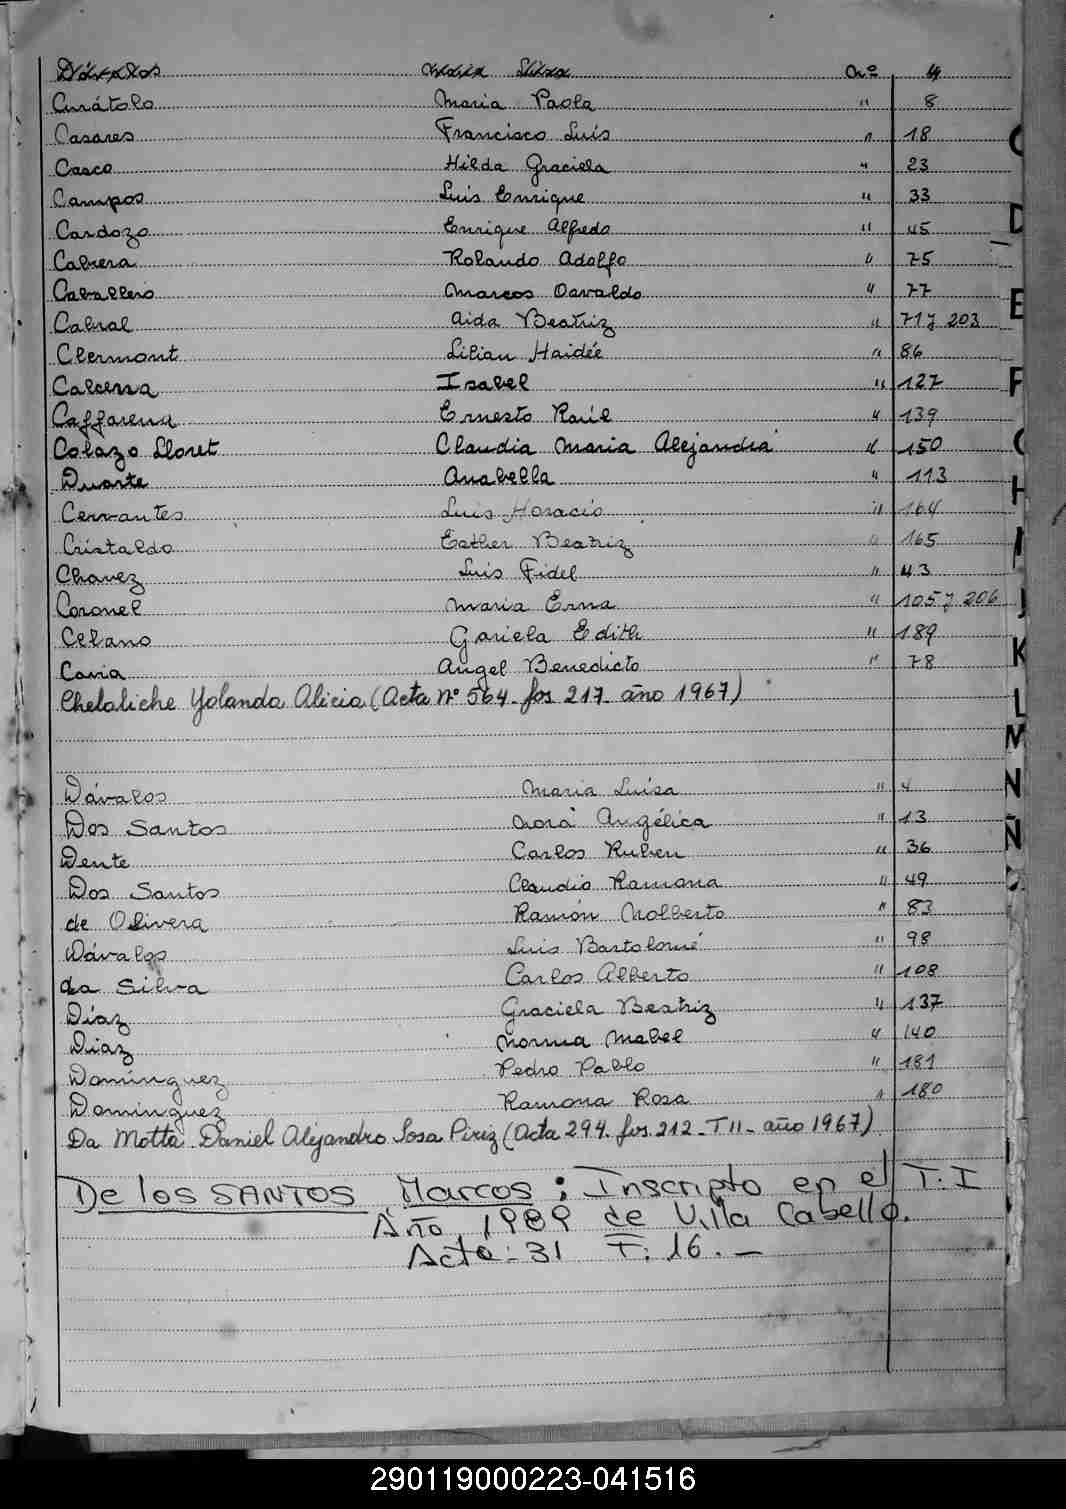 Dávalos María Luisa Nº 4
Curátolo Maria Paola " 8
Casares Francisco Luis " 18
Casco Hilda Graciela " 23
Campos Luis Enrique " 33
Cardozo Enrique Alfredo " 45
Cabrera Rolando Adolfo " 75
Caballero Marcos Osvaldo " 77
Cabral Aida Beatriz " 71 y 203
Clermont Lilian Haidée " 86
Calcena Isabel " 127
Caffarena Ernesto Raúl " 139
Colazo Lloret Claudia Maria Alejandra " 150
Duarte Anabella " 113
Cervantes Luis Horacio " 164
Cristaldo Esther Beatriz " 165
Chavez Luis Fidel " 43
Coronel Maria Erna " 105 y 206
Celano Gariela Edith " 189
Cavia Angel Benedicto " 78
Chelaliche Yolanda Alicia (Acta Nº 564. fos 217. año 1967)
Dávalos Maria Luisa " 4
Dos Santos Nora Angélica " 13
Dente Carlos Ruben " 36
Dos Santos Claudio Ramona " 49
de Olivera Ramón Nolberto " 83
Dávalos Luis Bartolomé " 98
da Silva Carlos Alberto " 108
Díaz Graciela Beatriz " 137
Diaz Norma Mabel " 140
Domínguez Pedro Pablo " 181
Domínguez Ramona Rosa " 180
Da Motta Daniel Alejandro Sosa Piriz (Acta 294. fos. 212 - T II - año 1967)
De los SANTOS Marcos: Inscripto en el T. I
Año 1989 de Villa Cabello.
Acta: 31 T. 16. —
C
D
E
F
G
H
I
J
K
L
M
N
Ñ
290119000223-041516